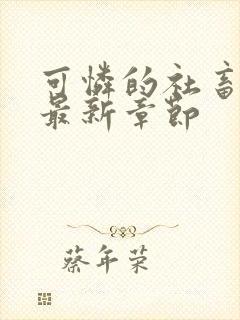 可憐的社畜
最新章節
蔡年荣